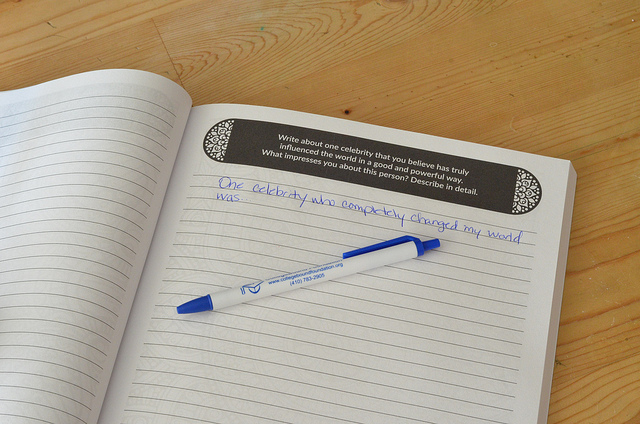 Write about one celebrity that you believe has truly
influenced the world in a good and powerful way.
What impresses you about this person? Describe in detail.
One celebrity who completely changed my world
was
www.collegeboundfoundation.org
(410) 783-2905